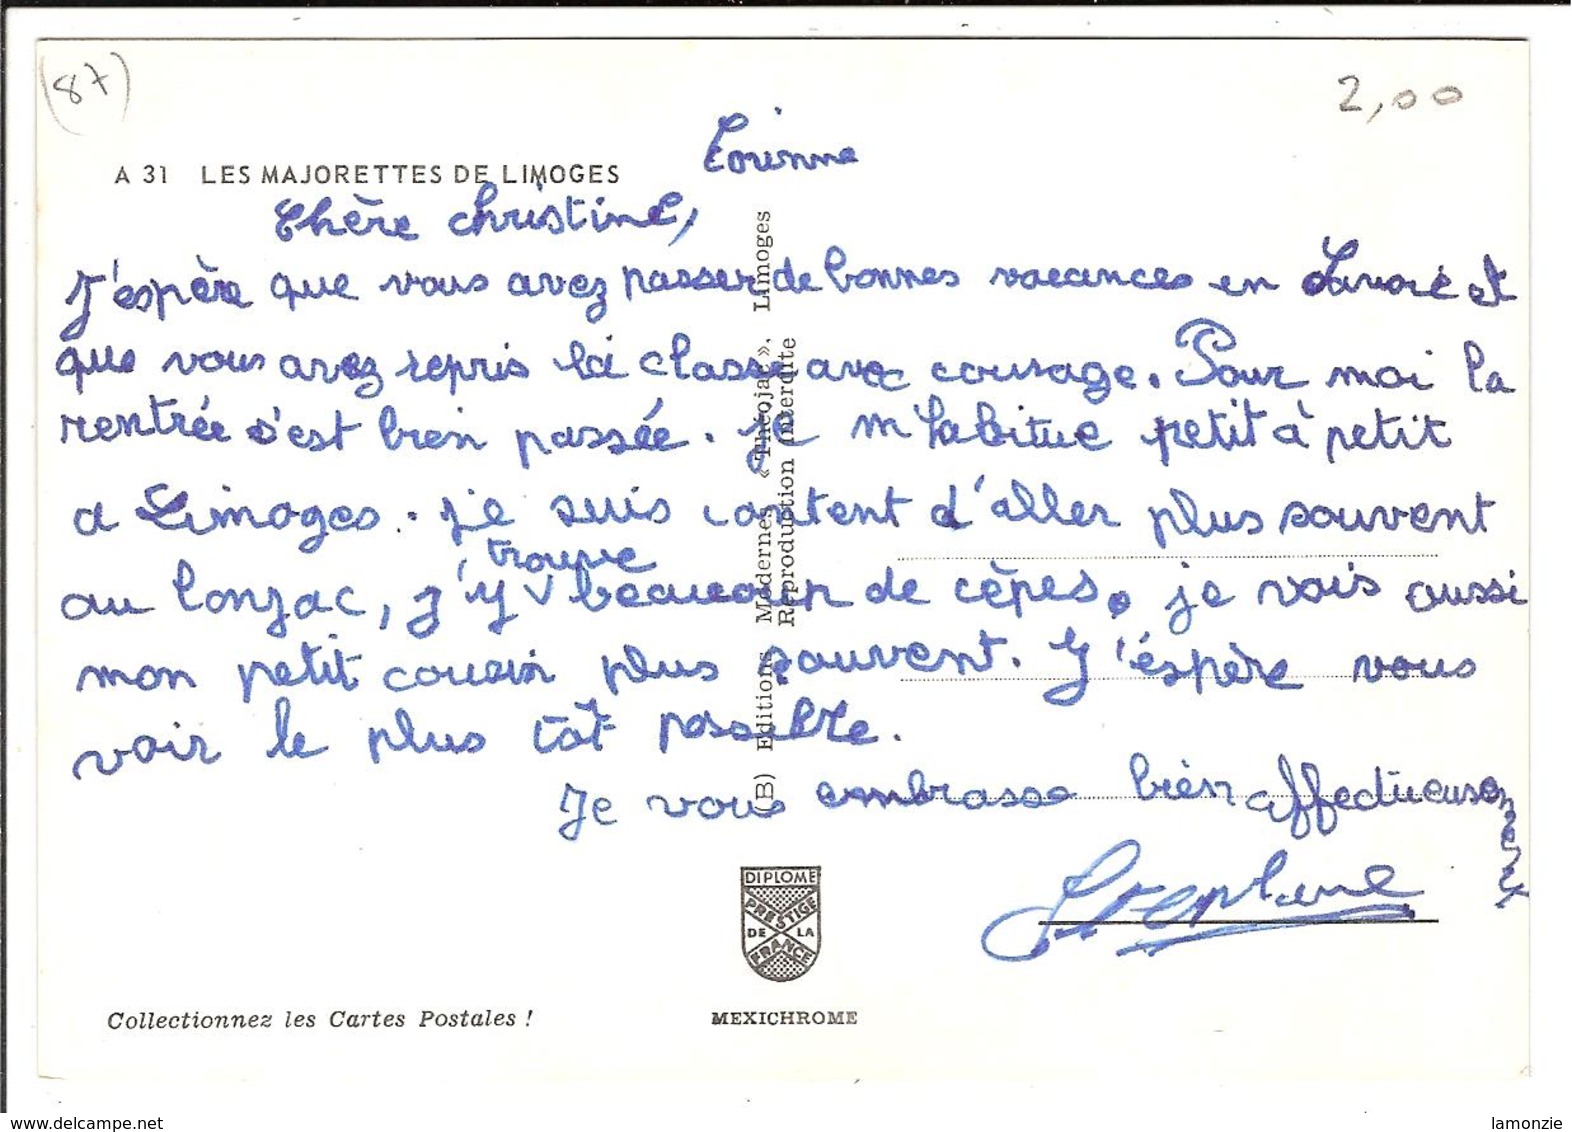 (87)
2,00
A 31 LES MAJORETTES DE LIMOGES
Corinne
Chère Christine,
J'espère que vous avez passer de bonnes vacances en et
que vous avez repris la classe avec courage. Pour moi la
rentrée s'est bien passée. Je m'habitue petit à petit
a Limoges. je suis content d'aller plus souvent
trouve
au Lonzac, j'y v beaucoup de cèpes, je vois aussi
mon petit cousin plus souvent. J'éspère vous
voir le plus tôt possible.
Je vous embrasse bien affectueusement
Stephane
(B) Editions Modernes « Théojac ». Limoges
Reproduction interdite
DIPLOME
PRESTIGE
DE LA
FRANCE
Collectionnez les Cartes Postales !
MEXICHROME
www.delcampe.net
lamonzie